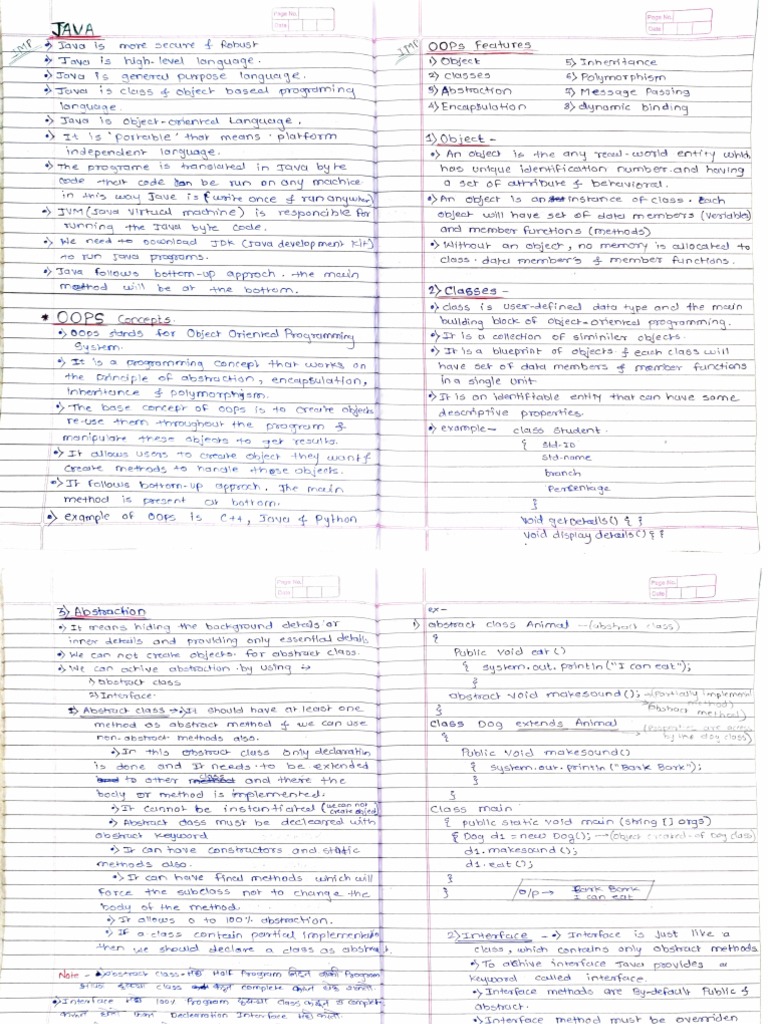 Page No.
Date
JAVA
IMP
•) Java is more secure & Robust
•) Java is high-level language.
•) Java is general purpose language.
•) Java is class & object based programing
language.
•) Java is object-oriented Language.
•) It is 'portable' that means platform
independent language.
•) The programe is translated in Java byte
code that code can be run on any machice
in this way Jave is (write once & run anywhere)
•) JVM (Java virtual machine) is responcible for
running the Java byte code.
•) We need to download JDK (Java development kit)
to run java programs.
•) Java follows bottom-up approch. the main
method will be at the bottom.
* OOPS Concepts.
•) OOPS stands for Object Oriented Programming
System.
•) It is a programming concept that works on
the principle of abstraction, encapsulation,
inheritance & polymorphism.
•) The base concept of oops is to create objects
re-use them throughout the program &
manipulate these objects to get results.
•) It allows users to create object they want &
create methods to handle those objects.
•) It follows bottom-up approch. The main
method is present at bottom.
•) example of OOPS is C++, Java & Python
Page No.
Date
IMP
OOPs Features
1) Object 5) Inheritance
2) classes 6) Polymorphism
3) Abstraction 7) Message Passing
4) Encapsulation 8) dynamic binding
1) Object -
•) An object is the any real-world entity which
has unique identification number and having
a set of attribute & behavioral.
•) An object is an instance of class. Each
object will have set of data members (variables)
and member functions (methods)
•) Without an object, no memory is allocated to
class. data member's & member functions.
2) Classes -
•) class is user-defined data type and the main
building block of object-oriented programming.
•) It is a collection of siminiler objects.
•) It is a blueprint of objects & each class will
have set of data members & member functions
in a single unit
•) It is an identifiable entity that can have some
descriptive properties.
•) example - class student.
{ std-ID
std-name
branch
Percentage
}
void getDetails() { }
void display details() { }
Page No.
Date
3) Abstraction
•) It means hiding the background details or
inner details and providing only essential details
•) We can not create objects for abstract class.
•) We can achive abstraction by using
1) abstract class
2) Interface.
1) Abstract class → •) It should have at least one
method as abstract method & we can use
non-abstract methods also.
•) In this abstract class only declaration
is done and It needs to be extended
to other class and there the
body or method is implemented.
•) It cannot be instantiated (we can not create object)
•) Abstract class must be decleared with
abstract keyword
•) It can have constructors and static
methods also.
•) It can have final methods which will
force the subclass not to change the
body of the method.
•) It allows 0 to 100% abstraction.
•) If a class contain partial implementation
then we should declare a class as abstract
Note - •) abstract class Half Program Program
class complete
•) Interface 100% Program class complete
Declaration Interface
Page No.
Date
ex-
1) abstract class Animal - (abstract class)
{
Public void eat ()
{ system.out.println ("I can eat");
}
abstract void makesound(); → (Partially implement method)
(Abstract method)
}
class Dog extends Animal
{ (Properties are access by the dog class)
Public void makesound()
{ system.out.println ("Bark Bark");
}
}
class main
{ public static void main (string [] args)
{ Dog d1 = new Dog(); → (Object created of Dog class)
d1.makesound ();
d1.eat ();
}
} O/P → Bark Bark
I can eat
2) Interface - •) Interface is Just like a
class, which contains only abstract methods
•) To achive interface Java provides a
keyword called interface.
•) Interface methods are By-default Public &
abstract.
•) Interface method must be overriden